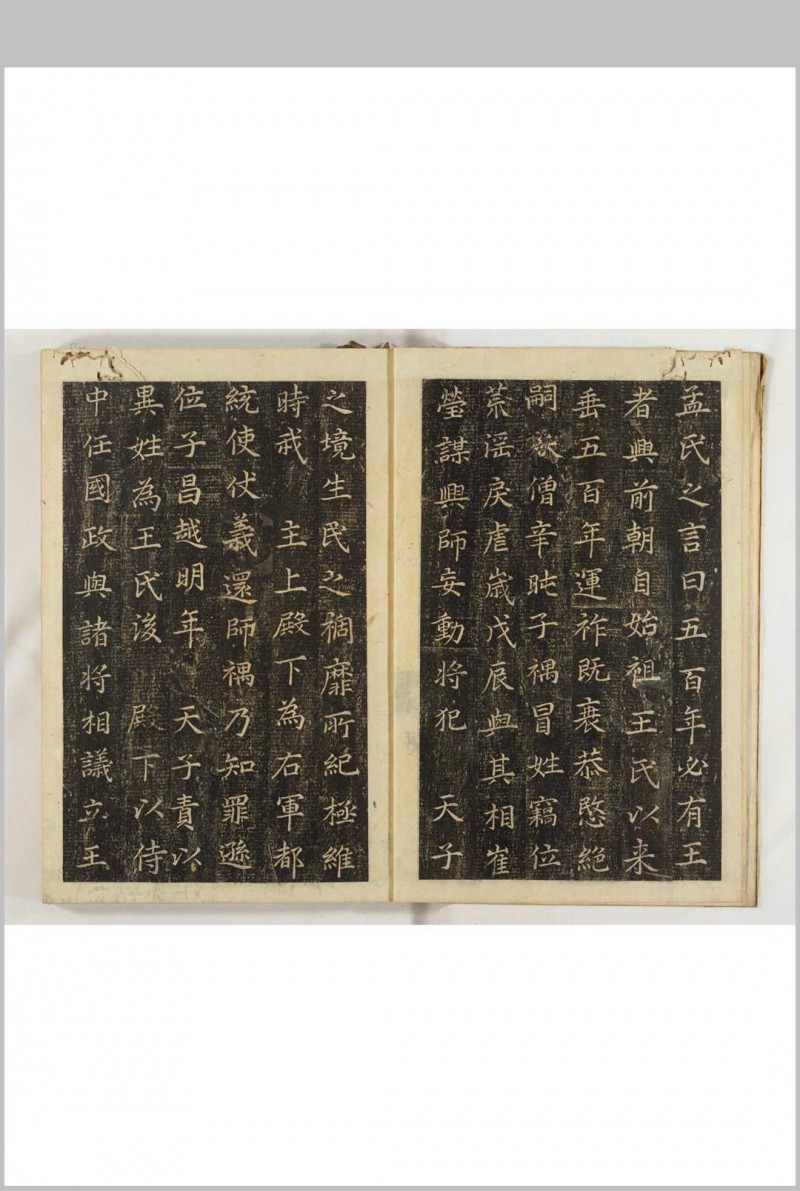 孟氏之言曰五百年必有王
者興前朝自始祖王氏以来
垂五百年運祚既衰恭愍絕
嗣妖僧辛旽子禑冒姓竊位
荒淫戾虐歳戊辰與其相崔
瑩謀興師妄動將犯 天子
之境生民之禍靡所紀極維
時我 主上殿下為右軍都
統使仗義還師禑乃知罪遜
位子昌越明年 天子責以
異姓為王氏後 殿下以侍
中任國政與諸将相議立王